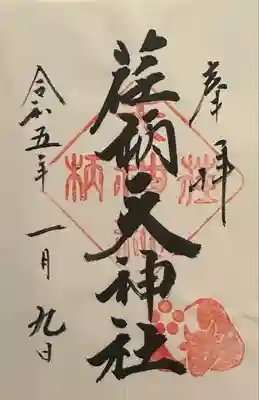 奉拝
荏柄天神社
令和五年 一月 九日